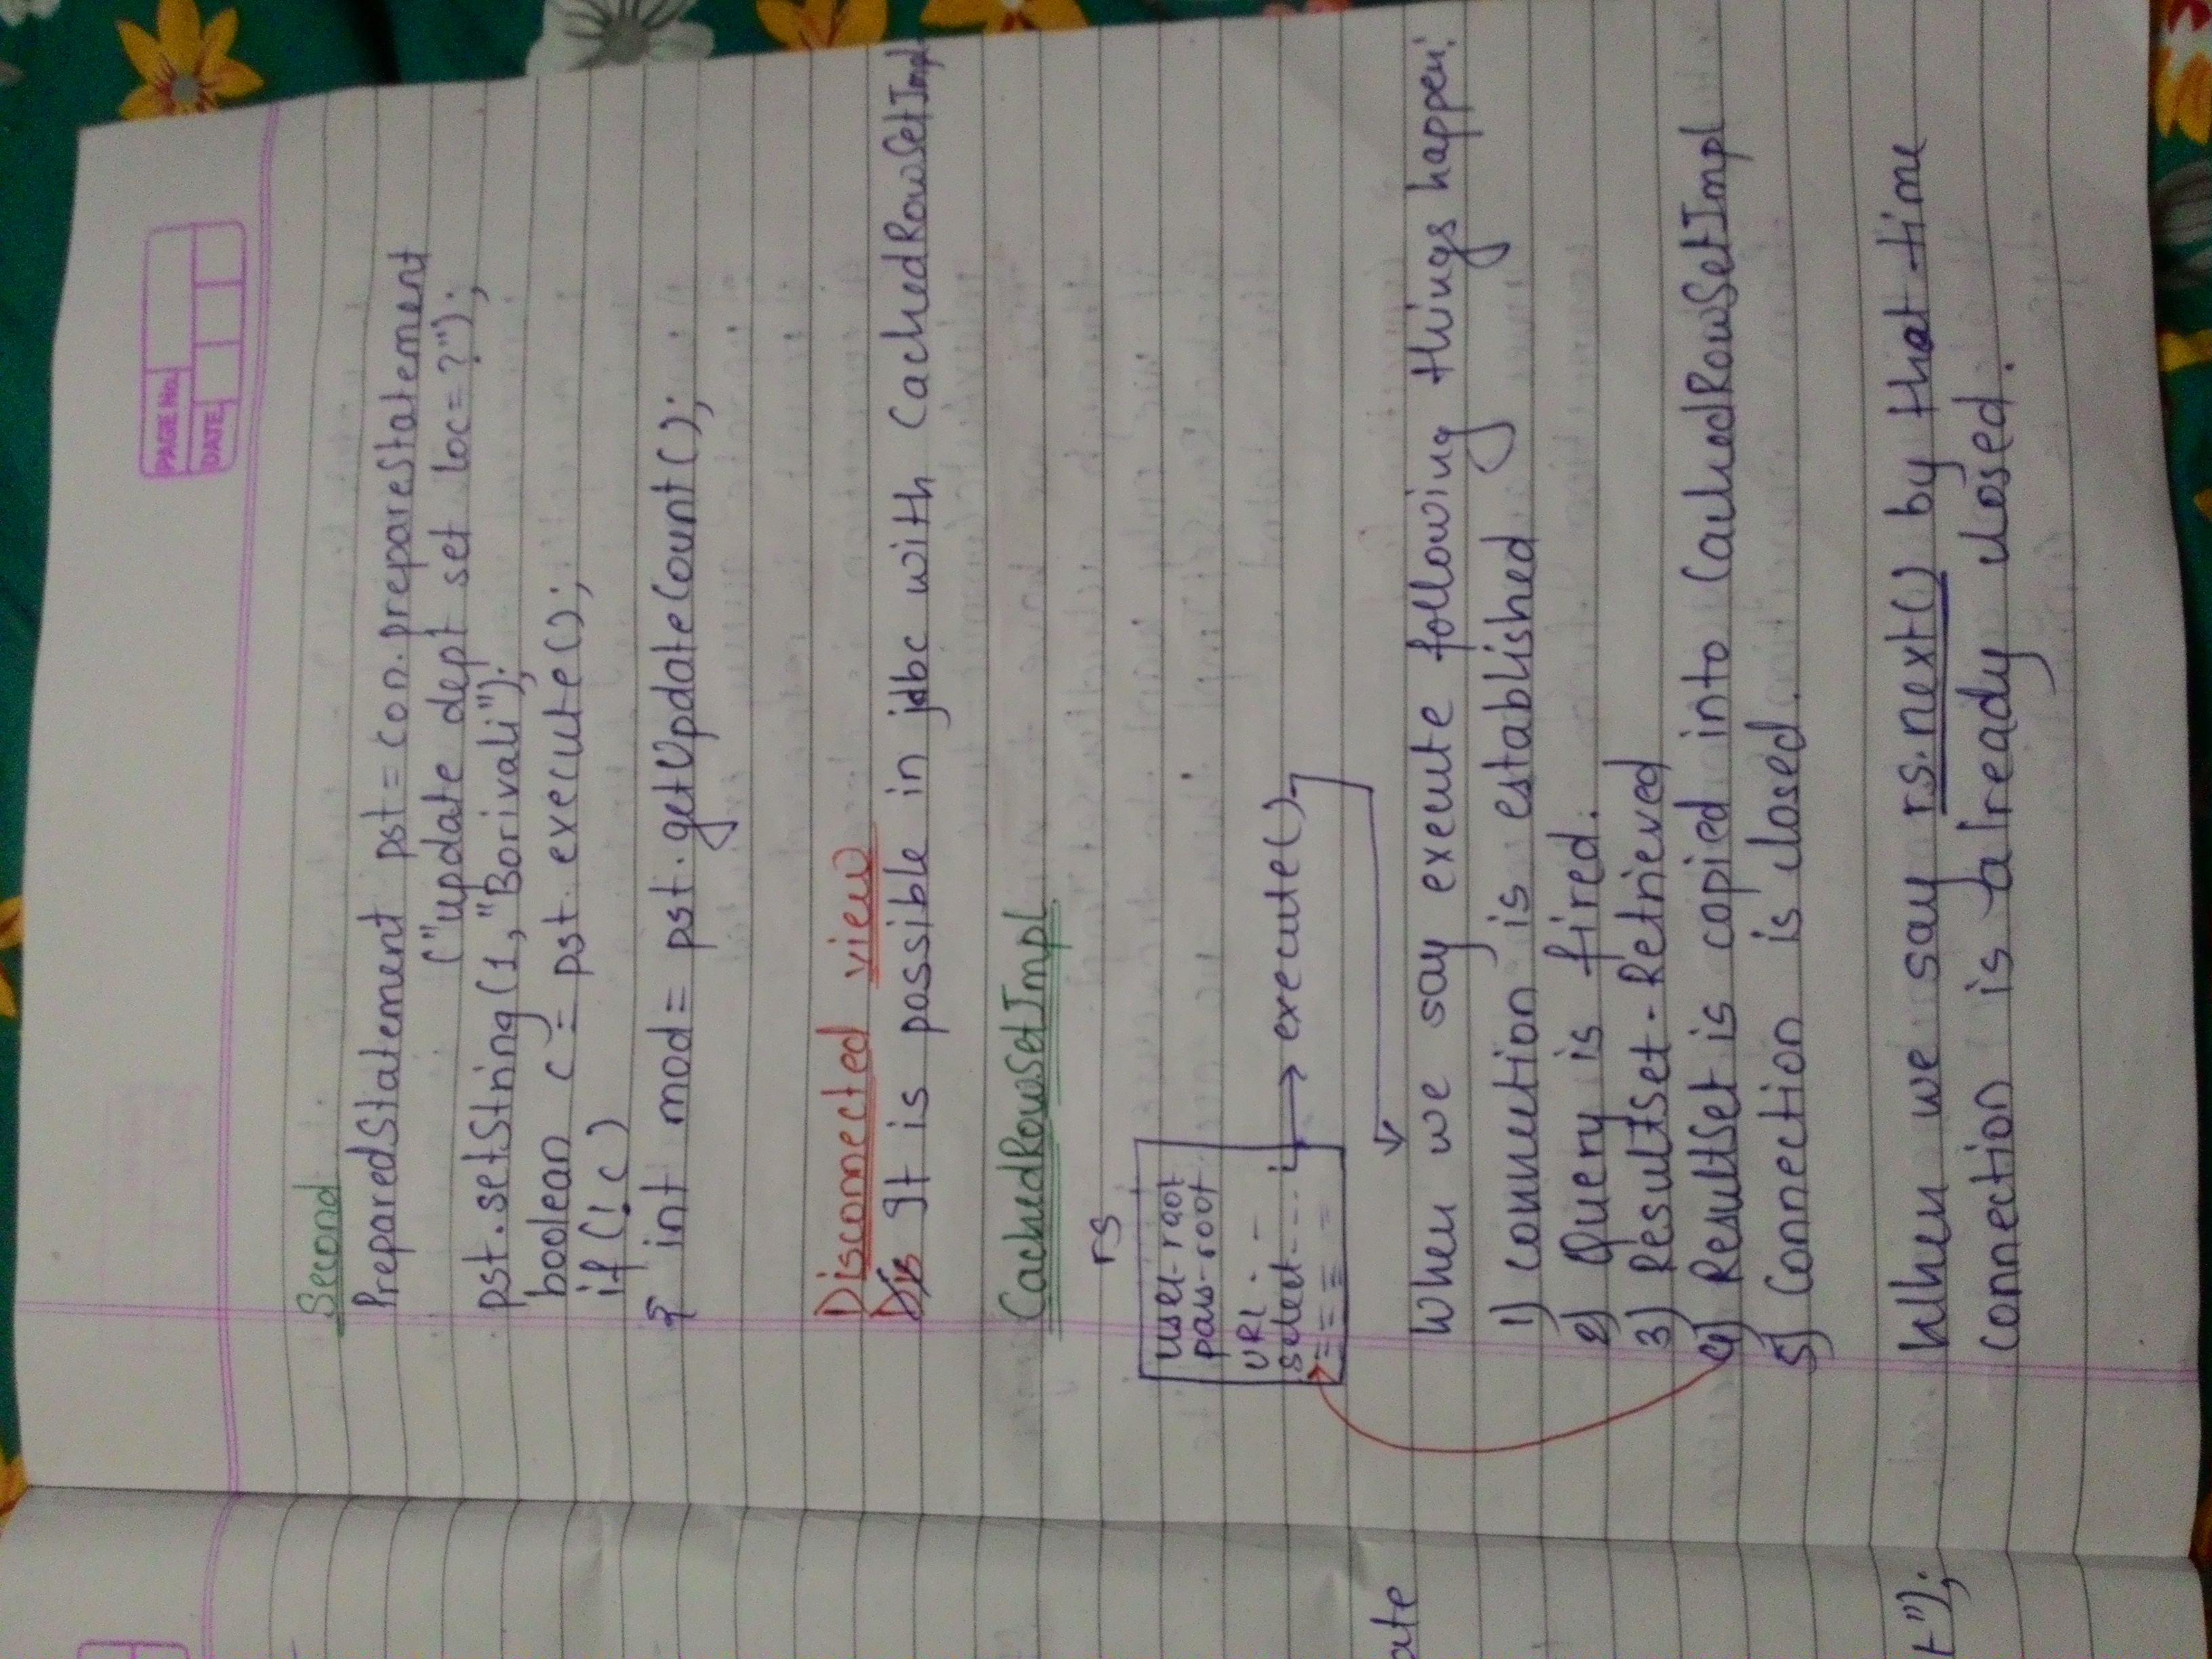 PAGE No.
DATE
Second
PreparedStatement pst = con.prepareStatement
("update dept set loc=?");
pst.setString(1, "Borivali");
boolean c = pst.execute();
if(!c)
{ int mod = pst.getUpdateCount();
Disconnected view
Dis It is possible in jdbc with CachedRowSetImpl
CachedRowSetImpl
rs
user-root
pass-root
URL - -
select - - - ;
execute()
ate
When we say execute following things happen:
1) connection is established
2) Query is fired.
3) ResultSet - Retrieved
4) ResultSet is copied into CachedRowSetImpl
5) Connection is closed.
t");
When we say rs.next() by that time
connection is already closed.